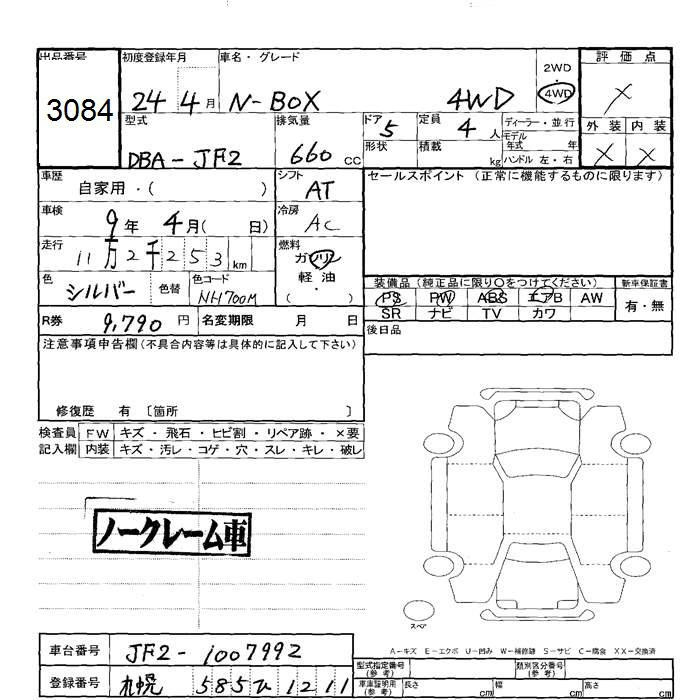 出品番号 初度登録年月 車名・グレード 評価点
3084 24 4月 N-BOX 4WD 2WD 4WD X
型式 排気量 ドア 5 定員 4人 ディーラー・並行 外装 内装
DBA-JF2 660cc 形状 積載 kg モデル年式 年 ハンドル 左・右 X X
車歴 自家用・( ) シフト AT セールスポイント(正常に機能するものに限ります)
車検 9年 4月( 日) 冷房 AC
走行 11万2千253km 燃料 ガソリン
軽油
色 シルバー 色替 色コード NH700M ・( )
装備品(純正品に限り○をつけてください) 新車保証書
PS PW ABS エアB AW 有・無
SR ナビ TV カワ
R券 9,790円 名変期限 月 日
後日品
注意事項申告欄(不具合内容等は具体的に記入して下さい)
修復歴 有 〔箇所 〕
検査員 FW キズ・飛石・ヒビ割・リペア跡・×要
記入欄 内装 キズ・汚レ・コゲ・穴・スレ・キレ・破レ
ノークレーム車
スペア
A-キズ E-エクボ U-凹み W-補修跡 S-サビ C-腐食 XX-交換済
車台番号 JF2-1007992
型式指定番号(参考) 類別区分番号(参考)
登録番号 札幌 585 ひ 1211
車庫証明用(参考) 長さ cm 幅 cm 高さ cm